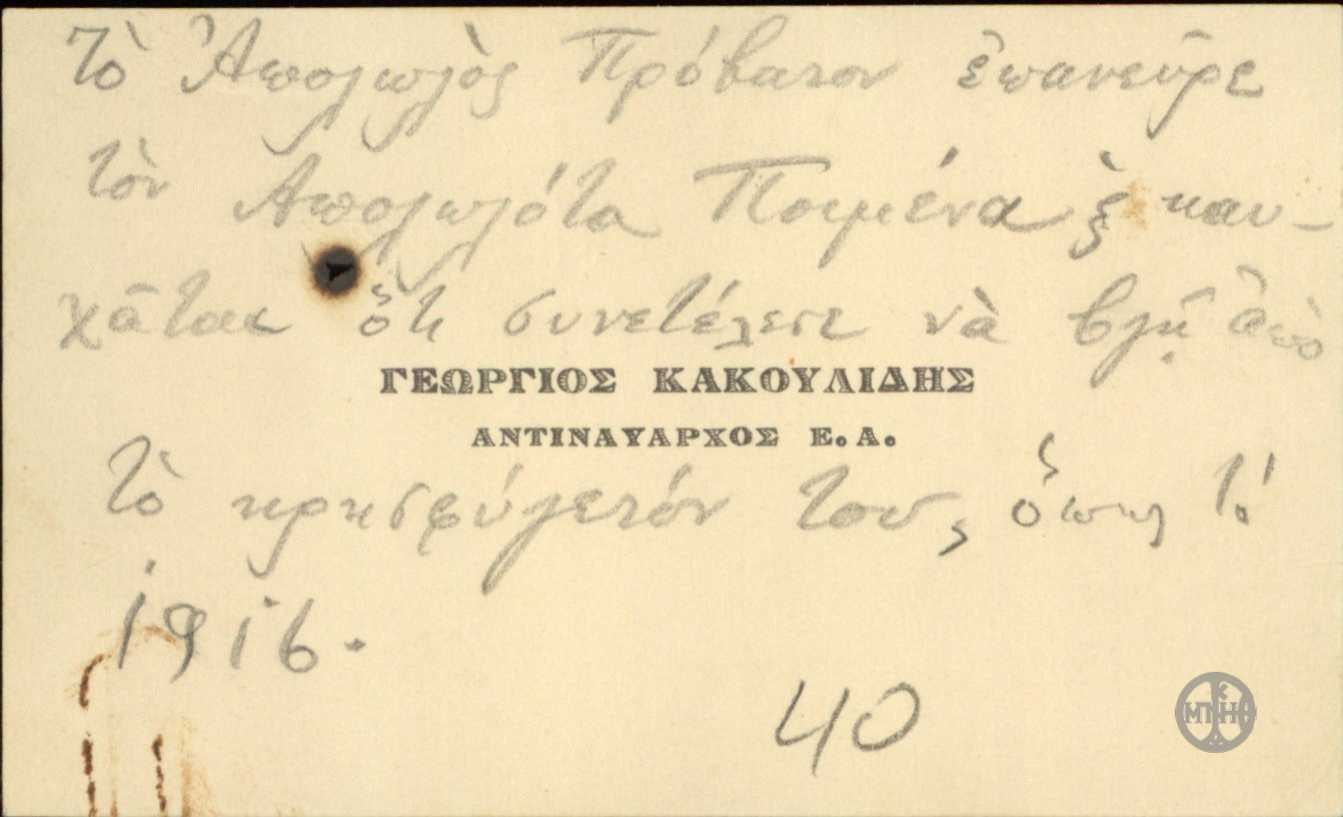 Τὸ Ἀπολωλὸς Πρόβατον ἐπανεῦρε
τὸν Ἀπολωλότα Ποιμένα ξ καυ-
χᾶται ὅτι συνετέλεσε νὰ βγῇ ἀπὸ
ΓΕΩΡΓΙΟΣ ΚΑΚΟΥΛΙΔΗΣ
ΑΝΤΙΝΑΥΑΡΧΟΣ Ε.Α.
τὸ κρησφύγετόν του, ὅπως τὸ
1916.
40
ΜΠΗ